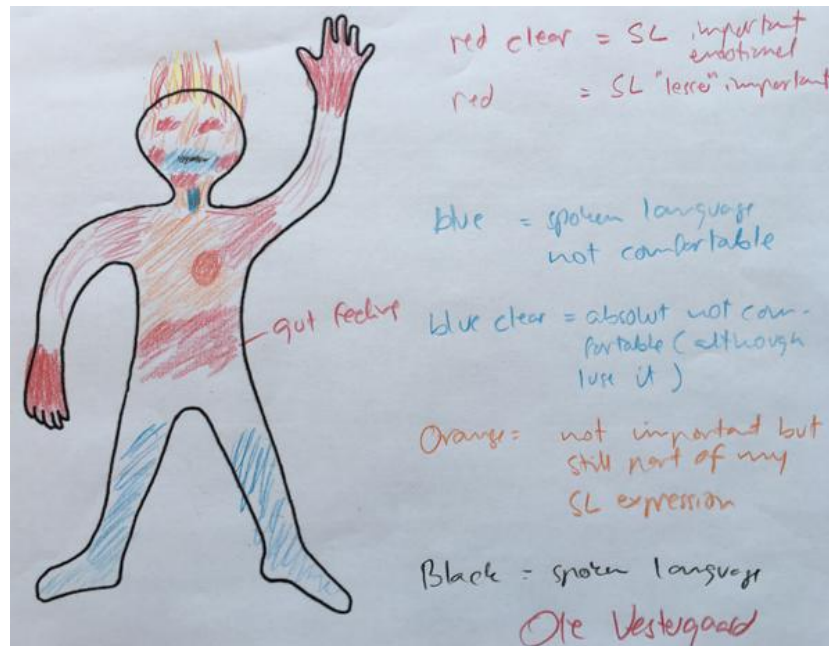 red clear = SL important
emotional
red = SL "lesser" important
blue = spoken language
not comfortable
blue clear = absolut not com-
fortable (although
I use it)
gut feeling
Orange = not important but
still part of my
SL expression
Black = spoken language
Ole Vestergaard